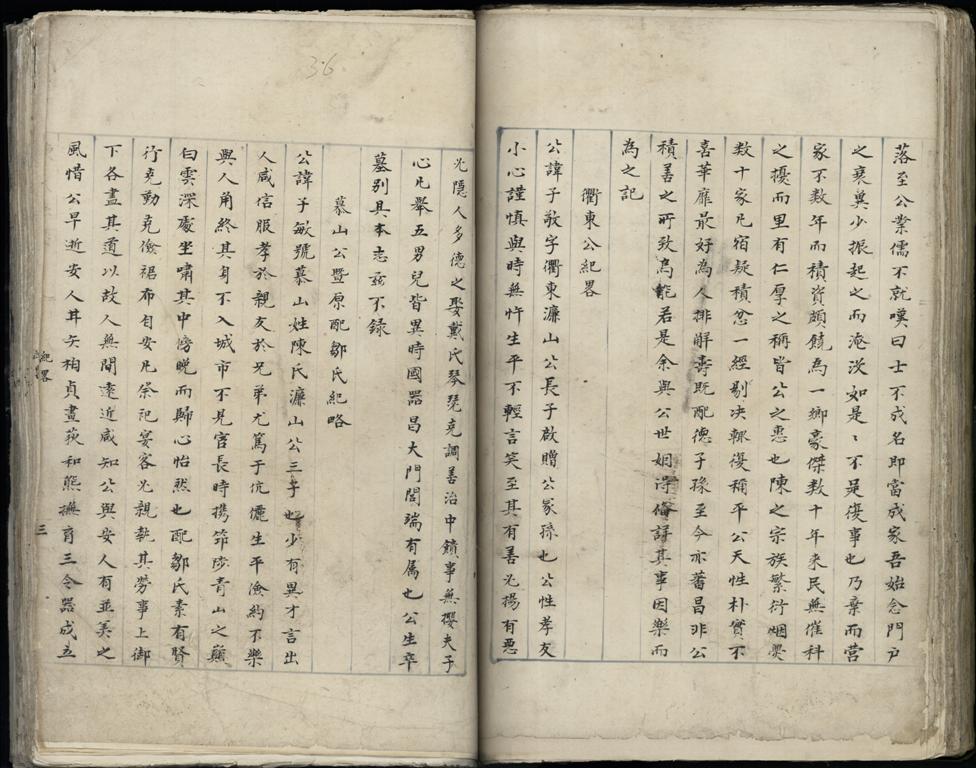 落至公業儒不就嘆曰士不成名即當成家吾始念門戶
之衰冀少振起之而淹沒如是〻不是復事也乃棄而營
家不數年而積資頗饒為一鄉豪傑數十年來民無催科
之擾而里有仁厚之稱皆公之惠也陳之宗族繁衍烟爨
数十家凡宿疑積忿一經剔决輒復稱平公天性朴實不
喜華靡最好為人排解壽既配德子孫至今亦蕃昌非公
積善之所致烏能若是余與公世姻深俻諳其事因樂而
為之記
衢東公紀畧
公諱子敬字衢東濂山公長子啟贈公冢孫也公性孝友
小心謹慎與時無忤生平不輕言笑至其有善必揚有惡
必隱人多德之娶戴氏琴瑟克調善治中饋事無攖夫子
心凡舉五男兒皆異時國器昌大門閭端有属也公生卒
墓别具本志茲不録
慕山公暨原配鄒氏紀略
公諱子敏號慕山姓陳氏濂山公三子也少有異才言出
人咸信服孝於親友於兄弟尤篤于伉儷生平儉約不樂
與人角終其身不入城市不見官長時携筇陟青山之巔
白雲深處坐嘯其中傍晚而歸心怡然也配鄒氏素有賢
行克勤克儉裙布自安凡祭祀宴客必親執其勞事上御
下各盡其道以故人無間遠近咸知公與安人有並美之
風惜公早逝安人丼矢栒貞畫荻和熊撫育三令器成立
紀畧
三
36